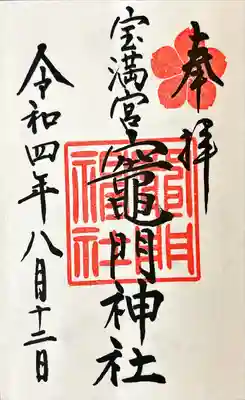 奉拝
宝満宮竈門神社
竈門
神社
令和四年八月十二日